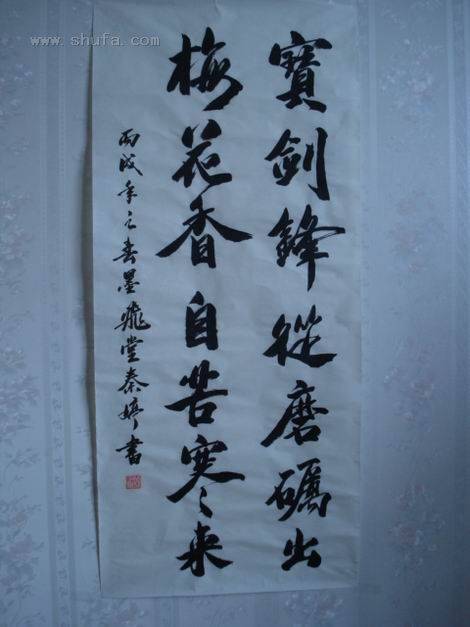 寶劍鋒從磨礪出
梅花香自苦寒来
丙戌年之春墨飛堂秦婷書
www.shufa.com